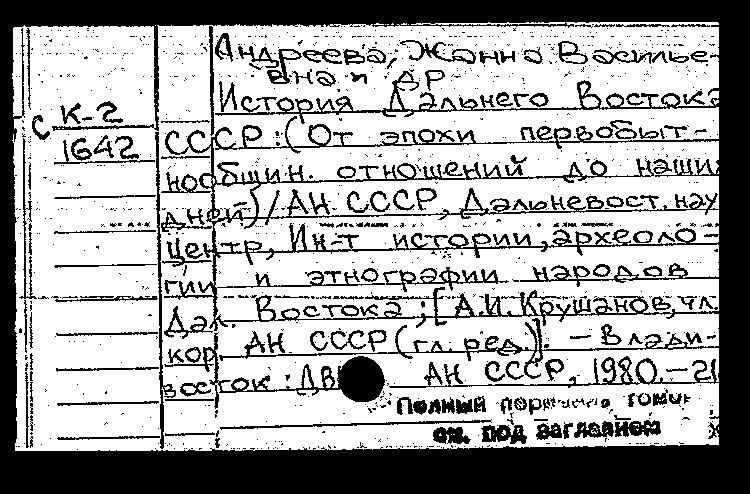 Андреева, Жанна Василье-
вна и др
История Дальнего Востока
С К-2
1642
СССР: (От эпохи первобыт-
нообщин. отношений до наших
дней) / АН СССР, Дальневост. науч.
центр, Ин-т истории, археоло-
гии и этнографии народов
Дал. Востока ; [А.И. Крушанов, чл.
кор. АН СССР (гл. ред.)]. – Влади-
восток : ДВ АН СССР, 1980. – 21
Полный перечень томов
см. под заглавием